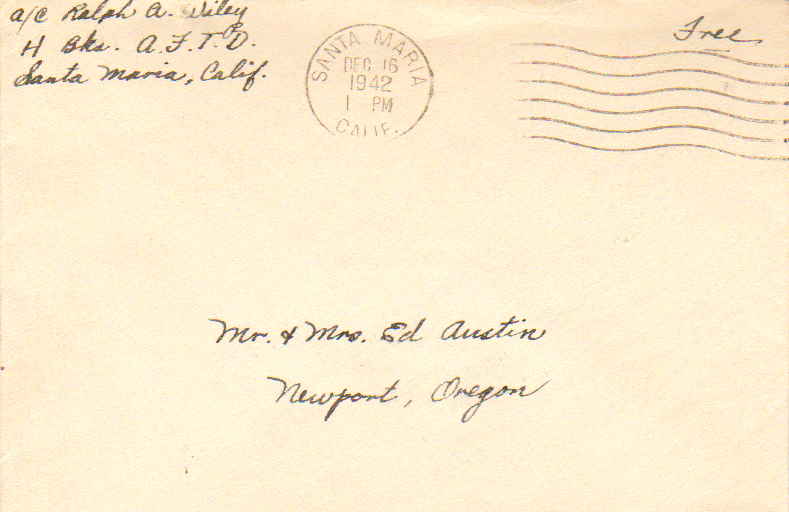 a/c Ralph A. Wiley
H Bks. A.F.T.D.
Santa Maria, Calif.
SANTA MARIA
DEC 16
1942
1 PM
CALIF.
Free
Mr. & Mrs. Ed Austin
Newport, Oregon